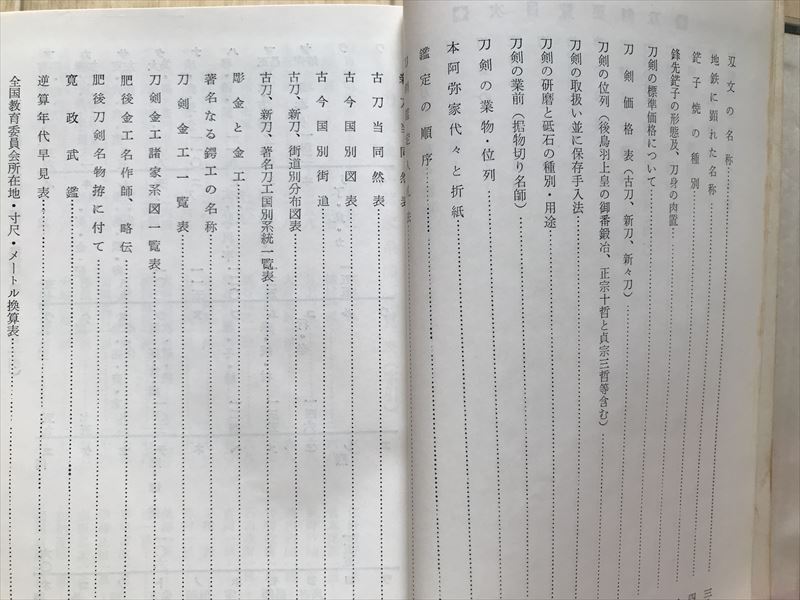 刄文の名称
地鉄に顕れた名称
鋩子焼の種別
鋒先鋩子の形態及、刀身の肉置
刀剣の標準価格について
刀剣価格表（古刀、新刀、新々刀）
刀剣の位列（後鳥羽上皇の御番鍛冶、正宗十哲と貞宗三哲等含む）
刀剣の取扱い並に保存手入法
刀剣の研磨と砥石の種別・用途
刀剣の業前（据物切り名師）
刀剣の業物・位列
本阿弥家代々と折紙
鑑定の順序
古刀当同然表
古今国別図表
古今国別街道
古刀、新刀、街道別分布図表
古刀、新刀、著名刀工国別系統一覧表
彫金と金工
著名なる鍔工の名称
刀剣金工一覧表
刀剣金工諸家系図一覧表
肥後金工名作師、略伝
肥後刀剣名物拵に付て
寛政武鑑
逆算年代早見表
全国教育委員会所在地・寸尺・メートル換算表